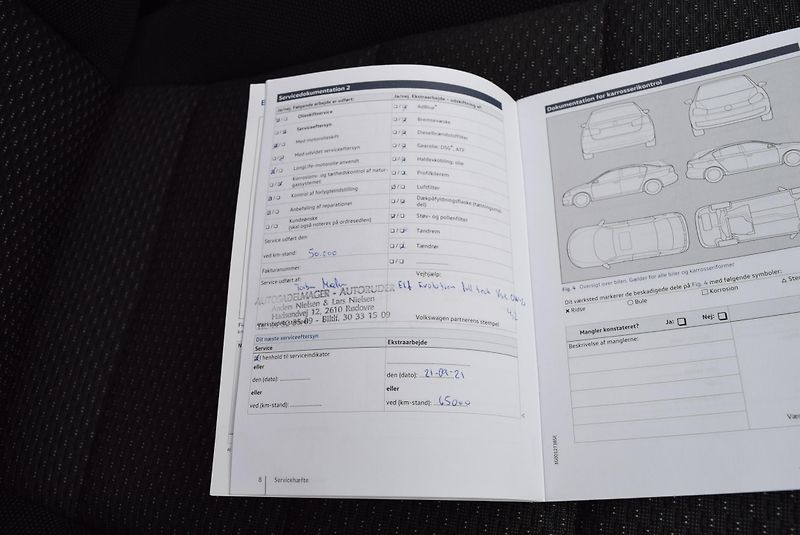 Servicedokumentation 2
Ja/nej. Følgende arbejde er udført:
Ja/nej. Ekstraarbejde - udskiftning af:
Olieskiftservice
Serviceeftersyn
Med motorolieskift
Med udvidet serviceeftersyn
LongLife-motorolie anvendt
Korrosions- og tæthedskontrol af natur-
gassystemet
Kontrol af forlygteindstilling
Anbefaling af reparationer
Kundeønske
(skal også noteres på ordresedlen)
AdBlue®
Bremsevæske
Dieselbrændstoffilter
Gearolie: DSG®, ATF
Haldexkobling, olie
Profilkilerem
Luftfilter
Dækpåfyldningsflaske (tætningsmid-
del)
Støv- og pollenfilter
Tandrem
Tændrør
Service udført den:
ved km-stand: 50.000
Fakturanummer:
Service udført af:
Vejhjælp:
Elf Evolution full tech
AUTOSADELMAGER - AUTORUDER
Anders Nielsen & Lars Nielsen
2610 Rødovre
Biltlf. 30 33 15 09
Volkswagen partnerens stempel
Dit næste serviceeftersyn
Service
Ekstraarbejde
I henhold til serviceindikator
eller
den (dato):
eller
ved (km-stand):
den (dato): 21-09-21
eller
ved (km-stand): 65000
8 Servicehæfte
Dokumentation for karrosserikontrol
Fig. 4 Oversigt over bilen. Gælder for alle biler og karrosseriformer.
Dit værksted markerer de beskadigede dele på Fig. 4 med følgende symboler:
× Ridse
○ Bule
□ Korrosion
△ Sten
Mangler konstateret?
Ja:
Nej:
Beskrivelse af manglerne:
Væ